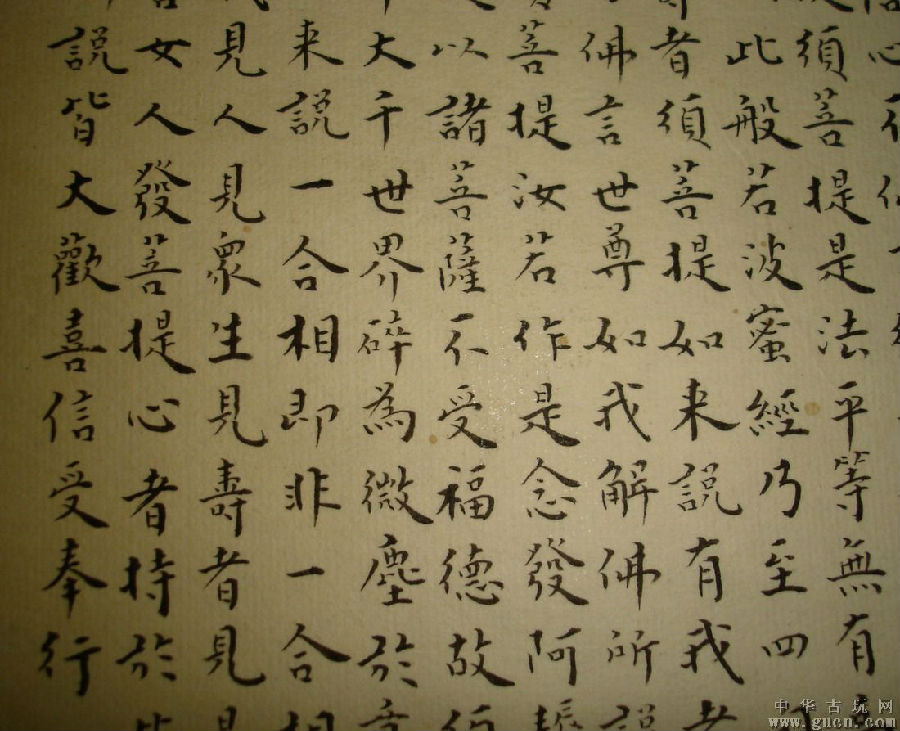 心不
須菩提是法平等無有
此般若波蜜經乃至四
者須菩提如来說有我者
佛言世尊如我解佛所說
菩提汝若作是念發阿耨
以諸菩薩不受福德故須
大千世界碎為微塵於意
来說一合相即非一合相
見人見衆生見壽者見是
女人發菩提心者持於此
說皆大歡喜信受奉行
中华古玩网
www.gucn.com